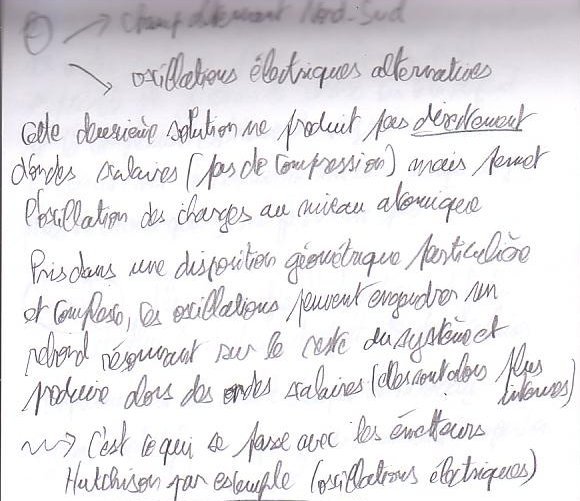 champ alternant Nord-Sud
oscillations électriques alternatives
Cette deuxième solution ne produit pas directement
d'ondes scalaires (pas de compression) mais permet
l'oscillation des charges au niveau atomique
Pris dans une disposition géométrique particulière
et complexe, les oscillations peuvent engendrer un
rebond résonnant sur le reste du système et
produire alors des ondes scalaires (elles sont alors plus intenses)
C'est ce qui se passe avec les émetteurs
Hutchison par exemple (oscillations électriques)